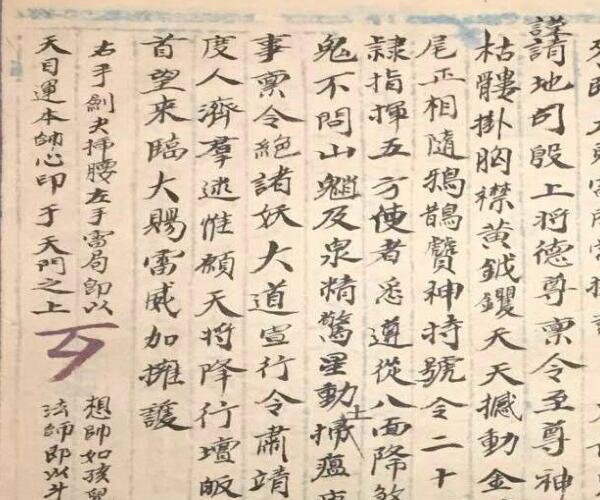 謹請地司殷上將德尊稟令至尊神
枯髏掛胸襟黃鉞钁天天撼動金
尾正相隨鴉鵲贊神持號令二十
隸指揮五方使者悉遵從八面降煞
鬼不問山魈及泉精驚星動掃瘟疫
士
事稟令絕諸妖大道宣行令肅靖
度人濟羣迷惟願天將降行壇皈
首望來臨大賜雷威加擁護
右手劍夬揷腰左手雷局即以
天目運本師心印于天門之上
想帥如孩
法師即以斗